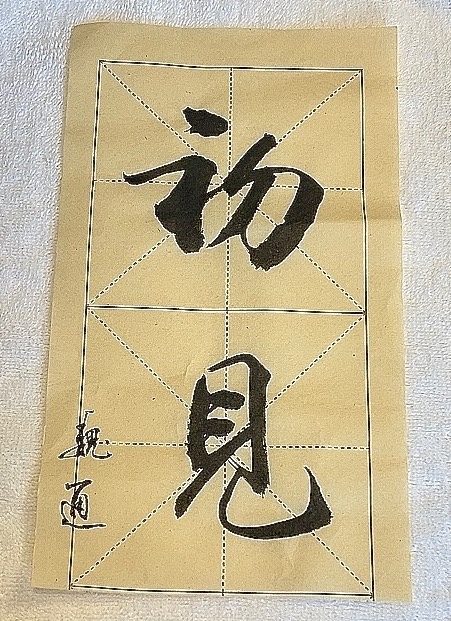 初見
魏通